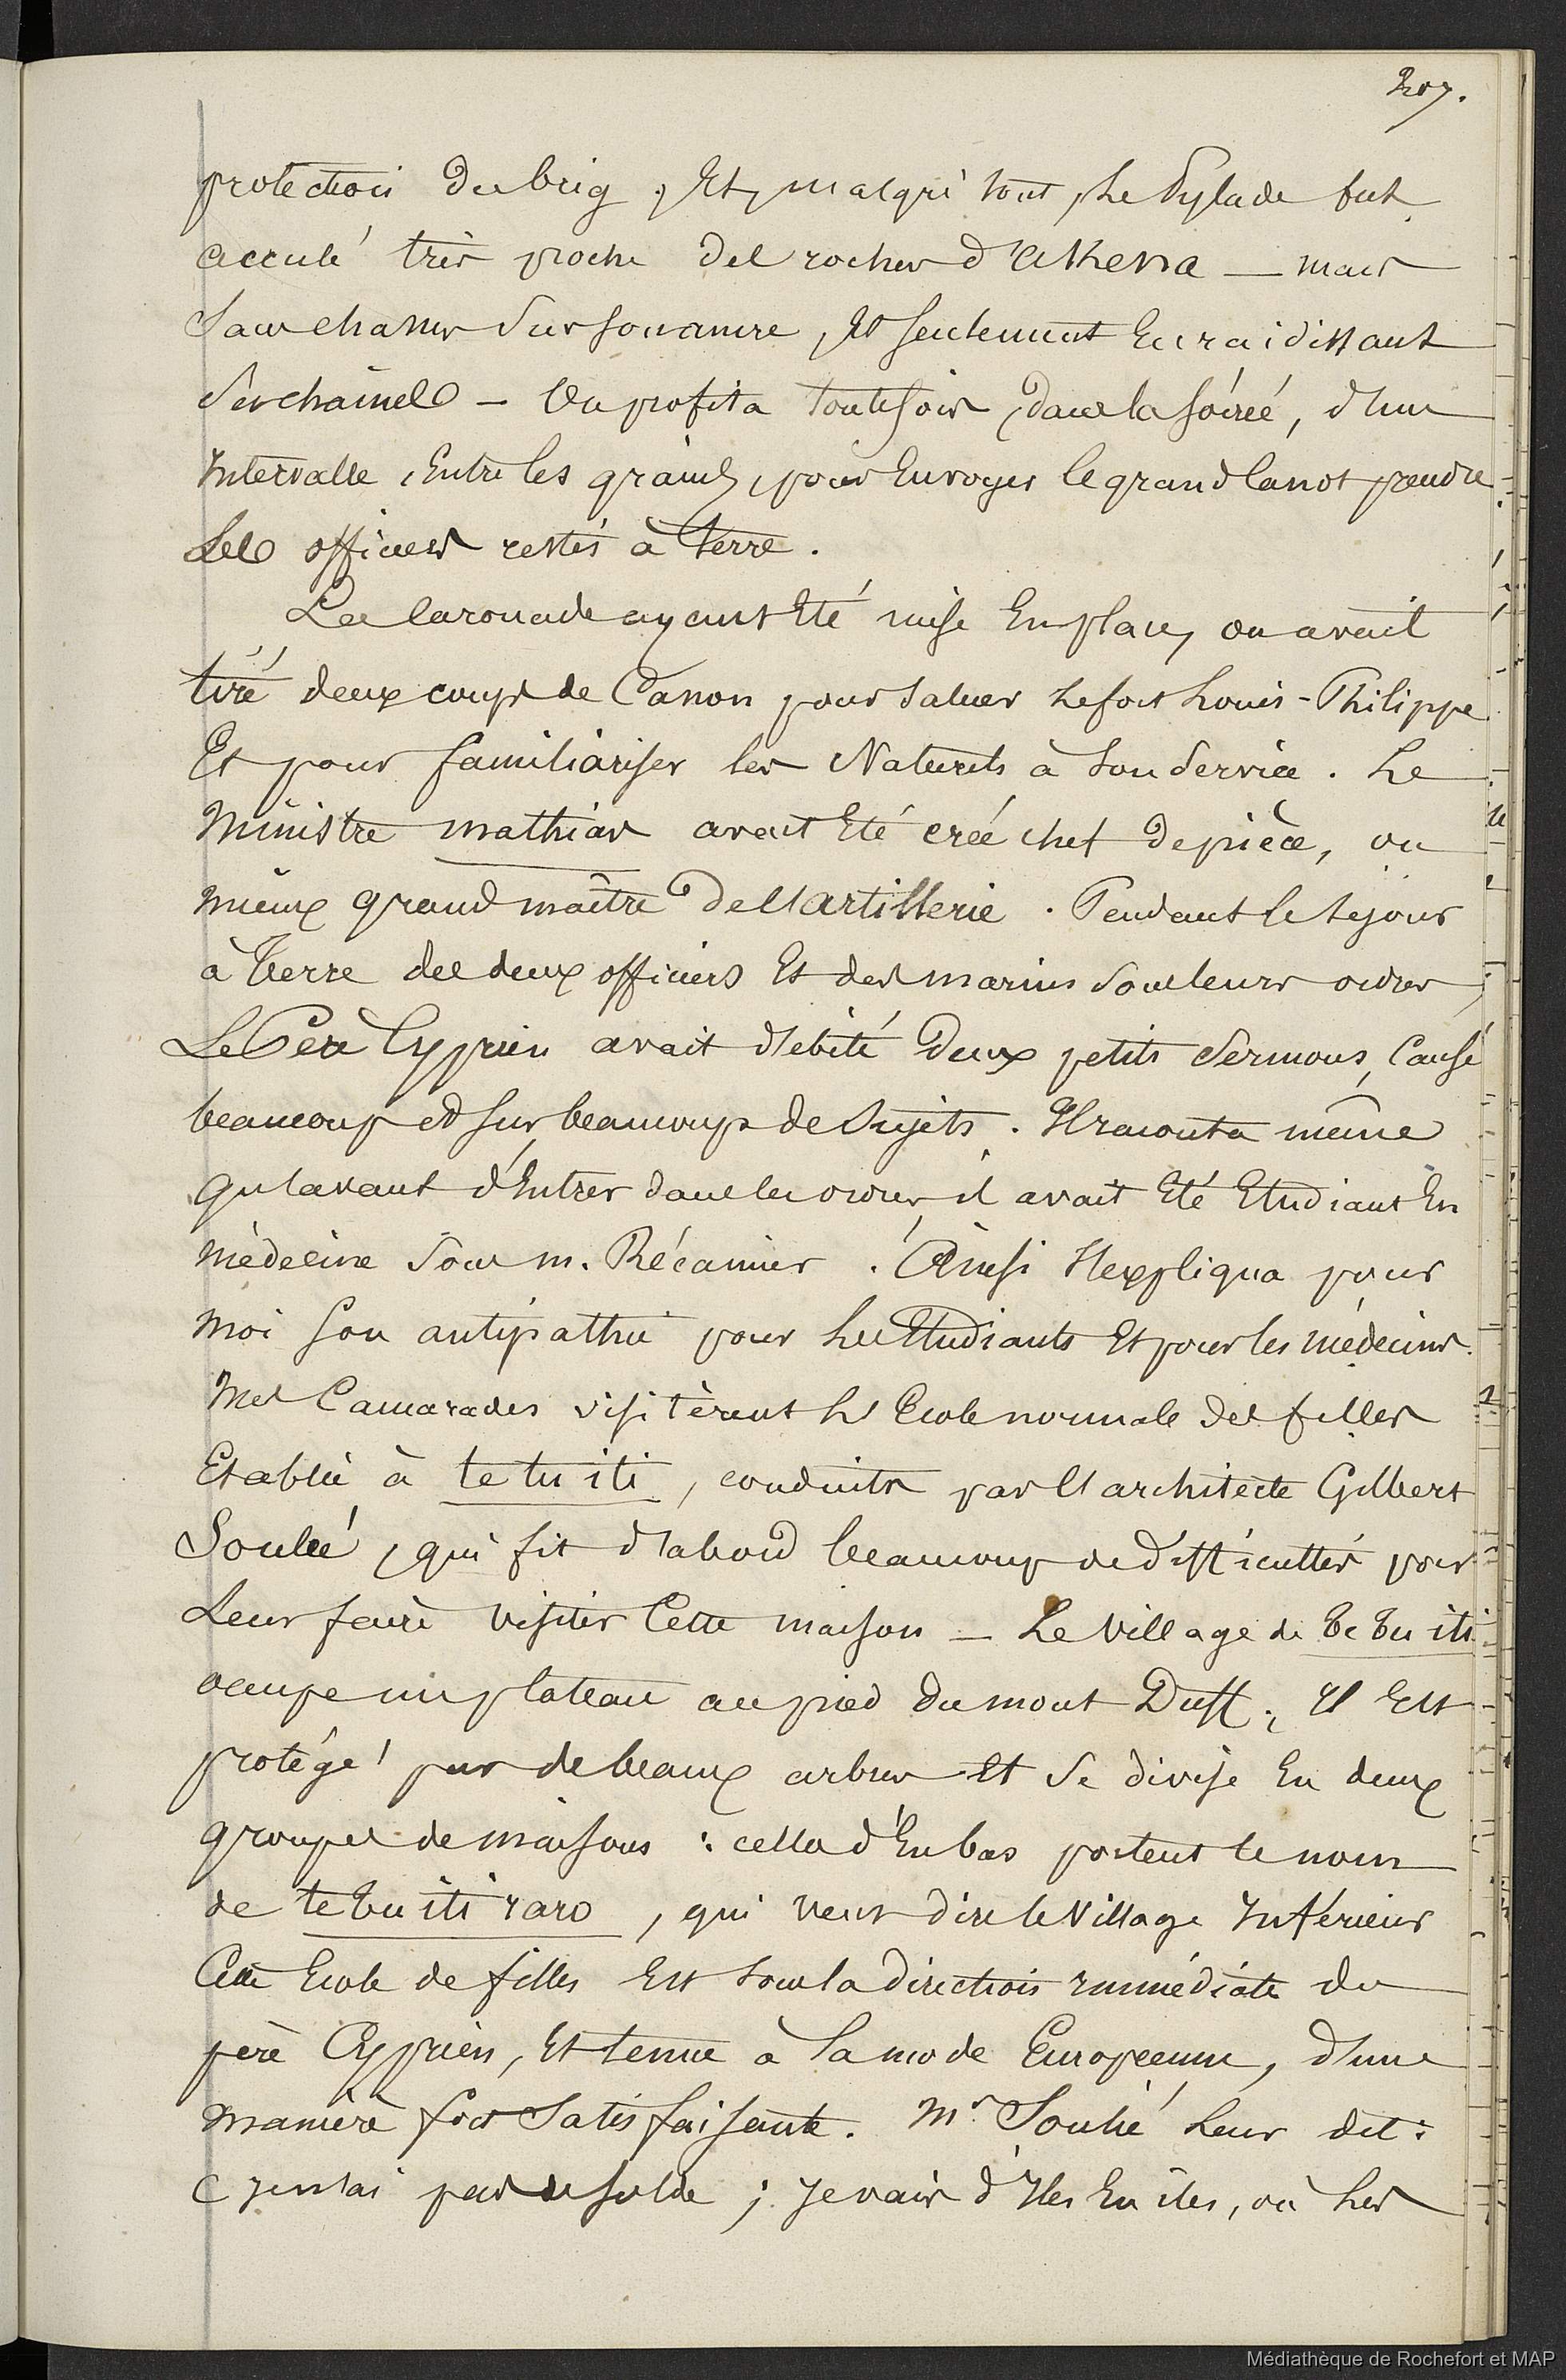 207.
protection du brig, Et, malgré tout, Le Pylade fut
acculé très proche des rochers d'aKena — mais
Sans chasser Sur son ancre, Et seulement En raidissant
Ses chaînes — On profita toutefois, dans la soirée, d'un
Intervalle, Entre les grains, pour Envoyer le grand Canot prendre
Les officiers restés à terre.
La Caronade ayant Eté mise En place, on avait
tiré deux coups de Canon pour saluer Le fort Louis-Philippe
Et pour familiariser les Naturels à Son Service. Le
Ministre mathias avait Eté créé chef de pièce, ou
mieux grand maître de l'artillerie. Pendant le séjour
à Terre des deux officiers Et des marins Sous leurs ordres,
Le Père Cyprien avait débité Deux petits Sermons, Causé
beaucoup et sur beaucoup de Sujets. Il raconta même
qu'avant d'Entrer dans les ordres il avait Eté Etudiant En
médecine Sous m. Récamier. Ainsi s'expliqua pour
moi Son antipathie pour les Etudiants Et pour les médecins.
Mes Camarades visitèrent L'Ecole normale des filles
Etablie à te tu iti, conduits par l'architecte Gilbert
Soulié, qui fit d'abord beaucoup de difficultés pour
Leur faire visiter Cette maison — Le Village de te tu iti
occupe un plateau au pied du mont Duff; Il Est
protégé par de beaux arbres Et Se divise En deux
groupes de maisons : celles d'En bas portent le nom
de te tu iti raro, qui veut dire le Village Inférieur
Cette Ecole de filles Est Sous la direction Immédiate du
père Cyprien, Et tenue à La mode Européenne, d'une
manière fort Satisfaisante. Mr. Soulié Leur dit :
« Je n'ai pas de solde ; Je vais d'Iles En îles, où Les
Médiathèque de Rochefort et MAP